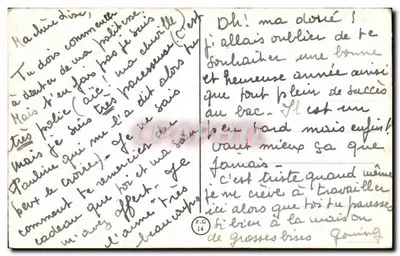 Ma chère Lise,
Tu dois commencer
à douter de ma politesse !
Mais t'en fais pas je suis
très polie (aïe, ma cheville)
mais je suis très paresseuse (c'est
Pauline qui me l'a dit alors tu
peux le croire). Je ne sais
comment te remercier du
cadeau que toi et ma sœur
m'avez offert. Je
l'aime très
beaucoup
Oh! ma doué !
j'allais oublier de te
souhaiter une bonne
et heureuse année ainsi
que tout plein de succès
au bac. Il est un
peu tard mais enfin !
vaut mieux ça que
jamais.
c'est triste quand même
je me crève à travailler
ici alors que toi tu paresses
si bien à la maison
de grosses bises
P.C
14